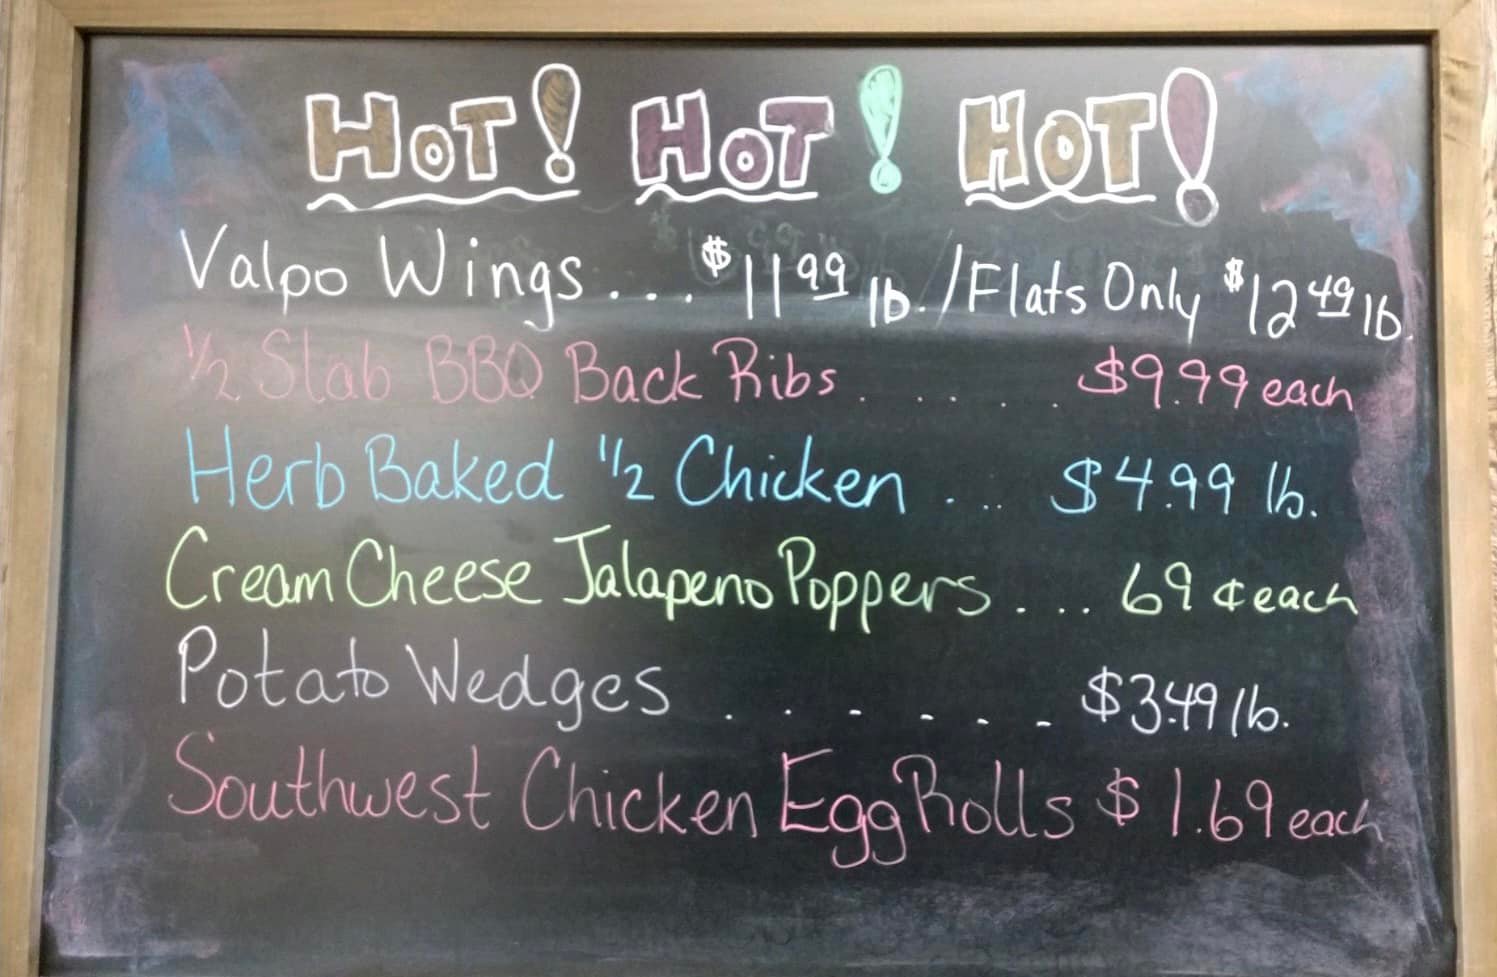 HOT! HOT! HOT!
Valpo Wings... $11.99 lb./Flats Only $12.49 lb.
1/2 Slab BBQ Back Ribs . . . . . $9.99 each
Herb Baked 1/2 Chicken . .. $4.99 lb.
Cream Cheese Jalapeno Poppers.... 69¢ each
Potato Wedges . . . . . . $3.49 lb.
Southwest Chicken Egg Rolls $1.69 each